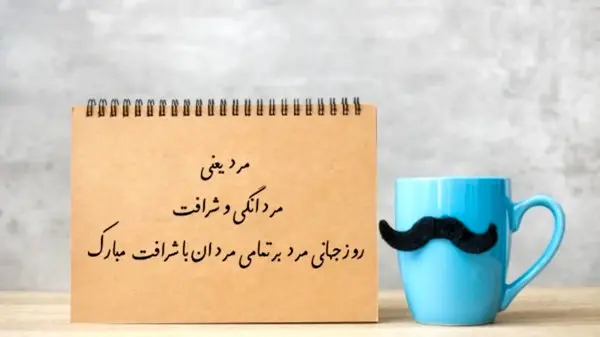 مرد یعنی
مردانگی و شرافت
روز جهانی مرد بر تمامی مردان با شرافت مبارک